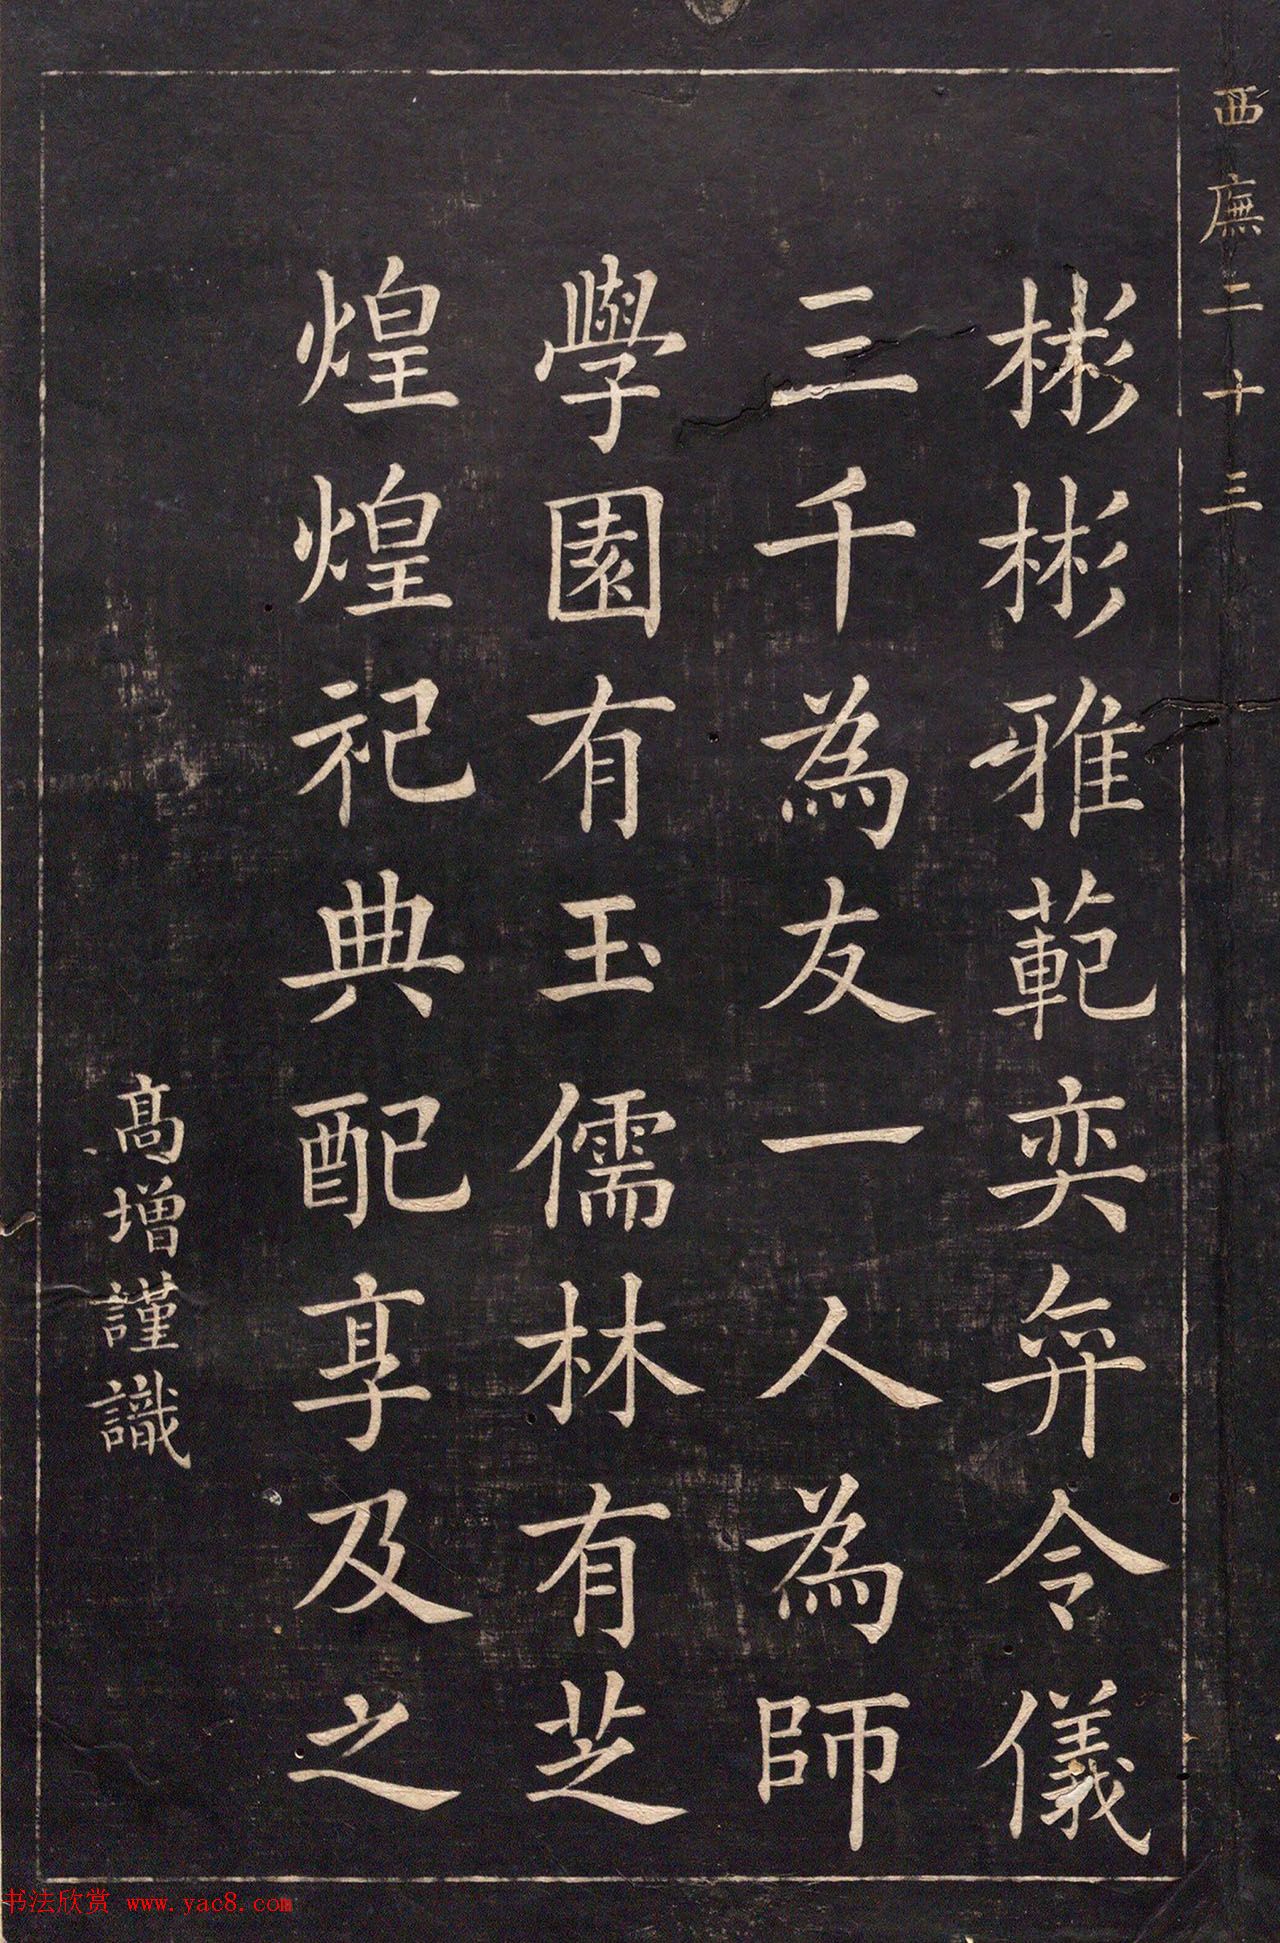 西廡二十三
彬彬雅範奕奕令儀
三千為友一人為師
學園有玉儒林有芝
煌煌祀典配享及之
高增謹識
书法欣赏 www.yac8.com